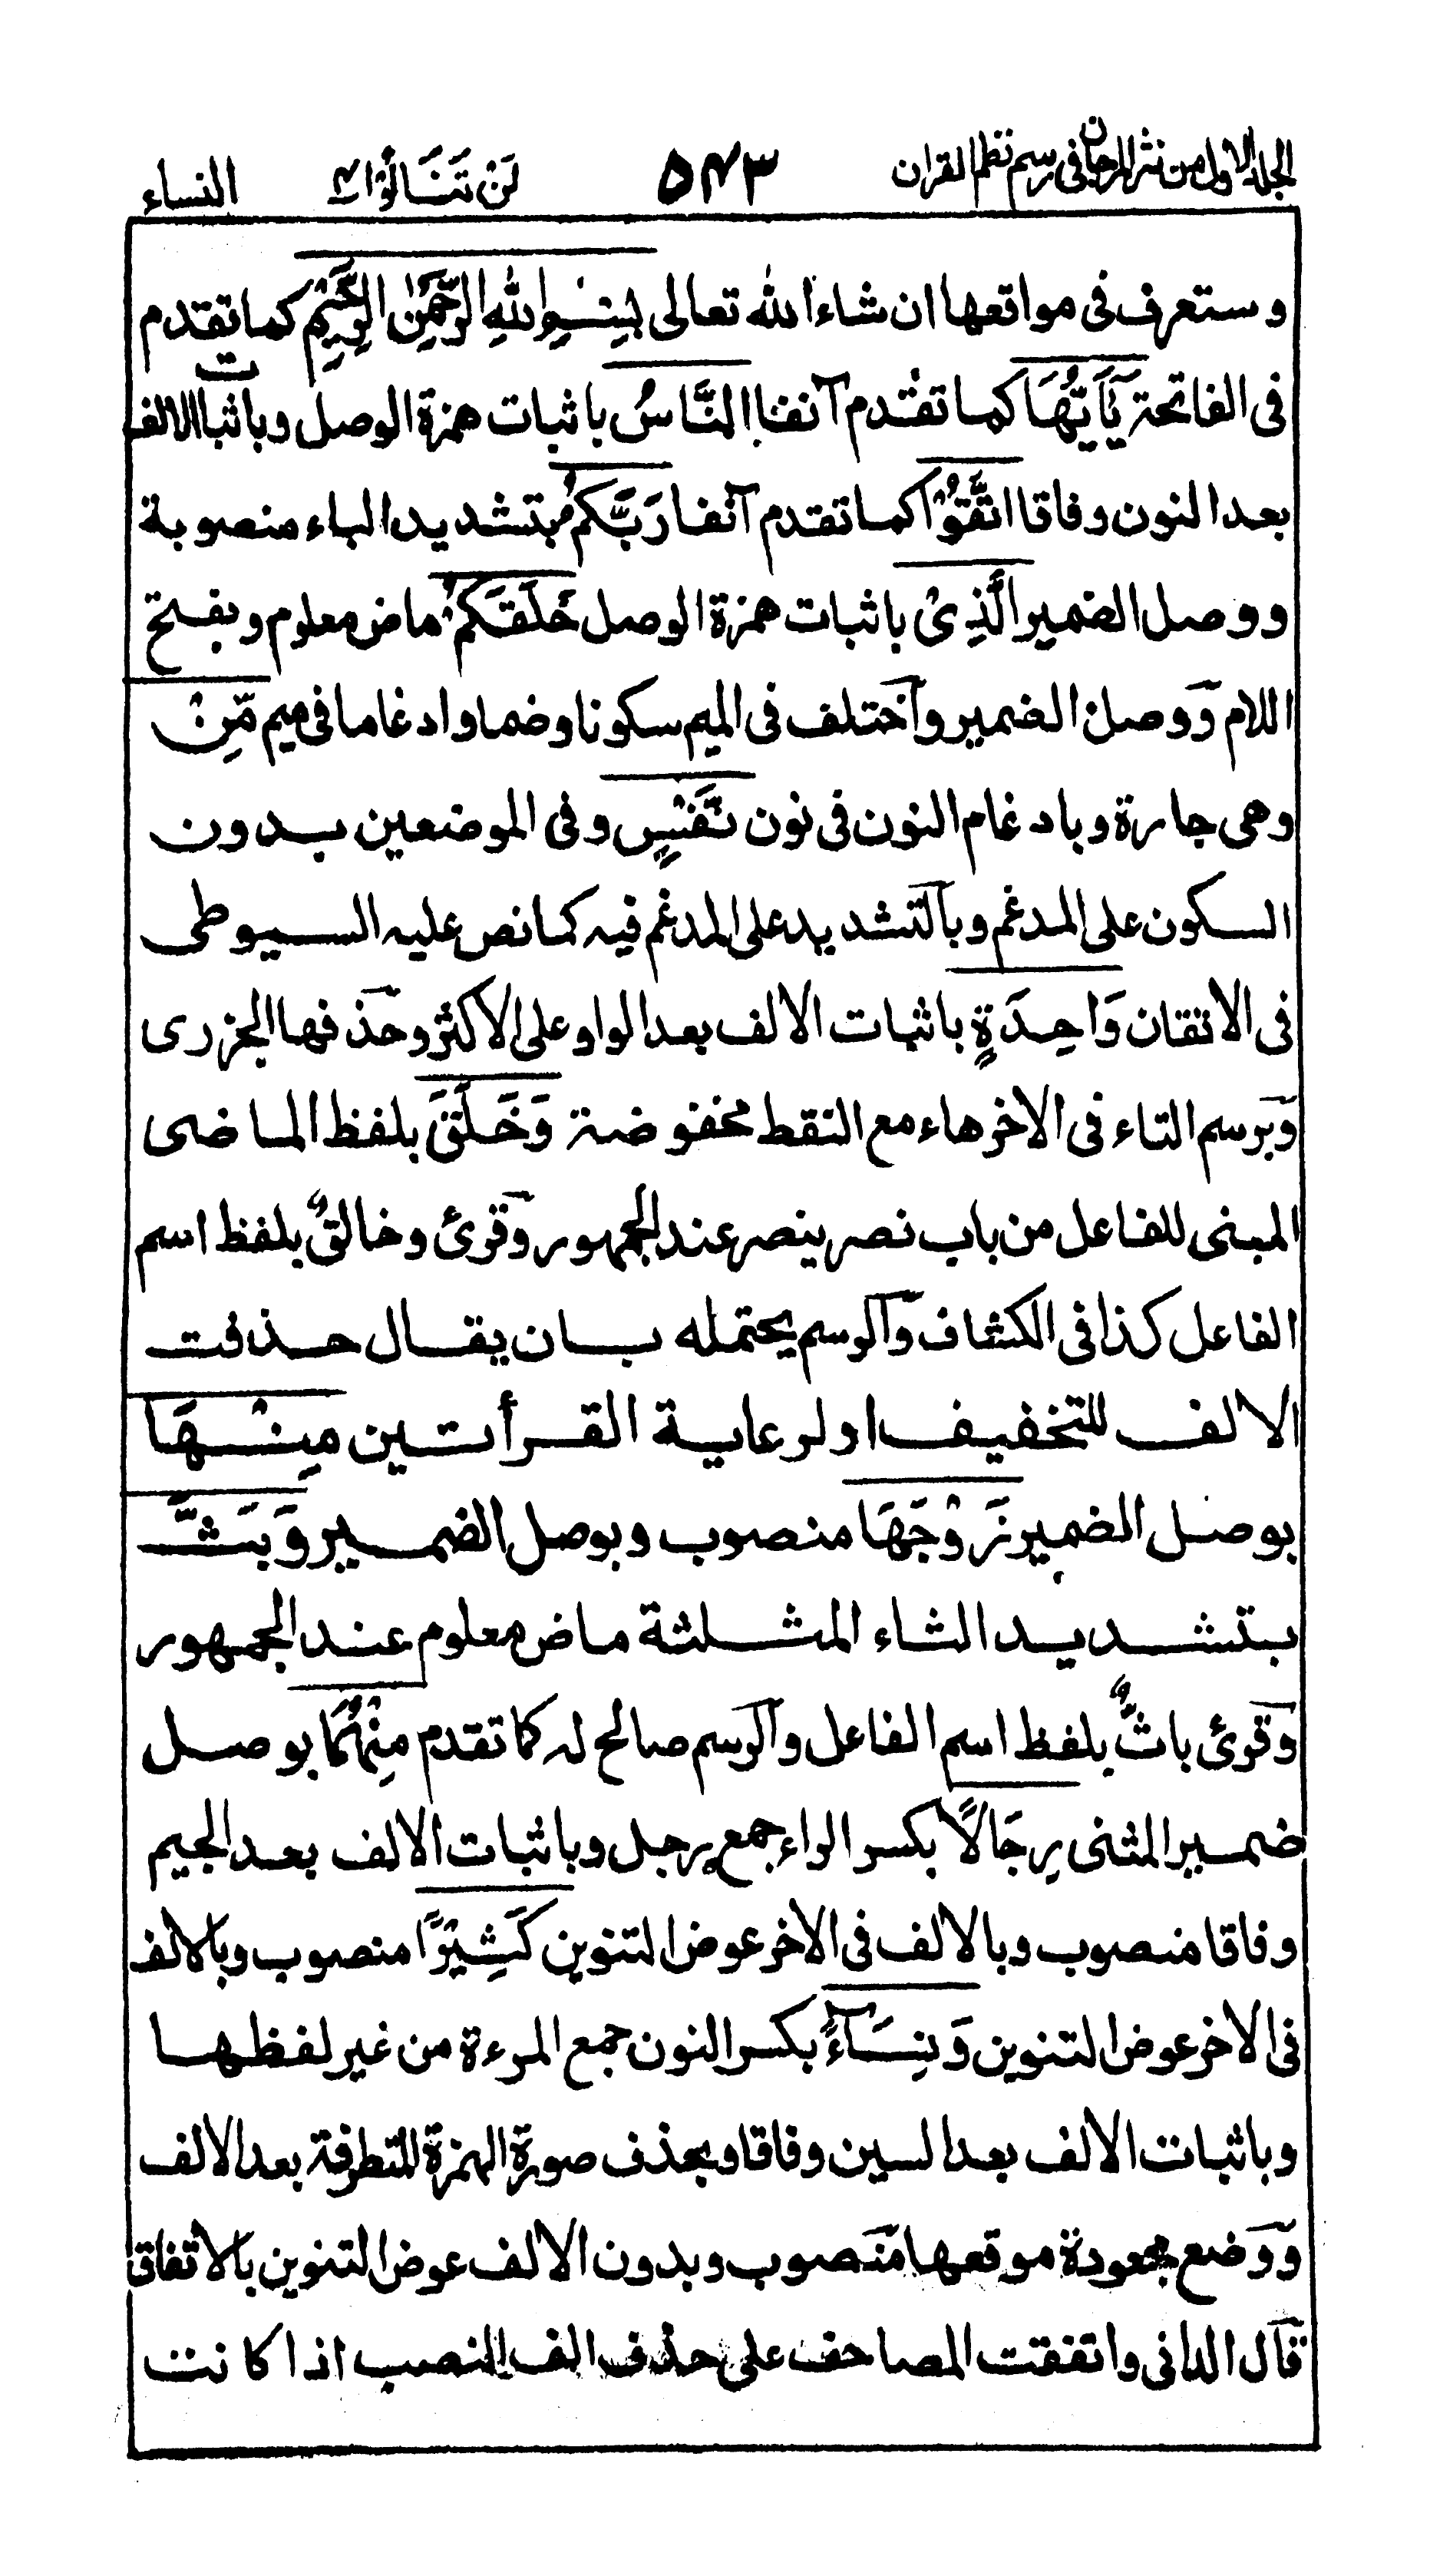 الجلد الاول من نثر المرجان فى رسم نظم القران ٥٤٣ لَنْ تَنَالُوْا ٤ النساء
وستعرف فى مواقعها ان شاء الله تعالى بِسْمِ اللهِ الرَّحْمٰنِ الرَّحِيْمِ كما تقدم
فى الفاتحة يٰٓاَيُّهَا كما تقدم آنفا النَّاسُ باثبات همزة الوصل وباثبات الالف
بعد النون وفاقا اتَّقُوْا كما تقدم آنفا رَبَّكُمُ بتشديد الباء منصوبة
ووصل الضمير الَّذِىْ باثبات همزة الوصل خَلَقَكُمْ ماض معلوم وبفتح
اللام ووصل الضمير واختلف فى الميم سكونا وضما وادغاما فى ميم مِّنْ
وهى جارة وبادغام النون فى نون نَّفْسٍ وفى الموضعين بدون
السكون على المدغم وبالتشديد على المدغم فيه كما نص عليه السيوطى
فى الاتقان وَاحِدَةٍ باثبات الالف بعد الواو على الاكثر وحذفها الجزرى
وبرسم التاء فى الاخر هاء مع النقط مخفوضة وَخَلَقَ بلفظ الماضى
المبنى للفاعل من باب نصر ينصر عند الجمهور وقرئ وخالقٌ بلفظ اسم
الفاعل كذا فى الكشاف والرسم يحتمله بان يقال حذفت
الالف للتخفيف او لرعاية القرأتين مِنْهَا
بوصل الضمير زَوْجَهَا منصوب وبوصل الضمير وَبَثَّ
بتشديد الثاء المثلثة ماض معلوم عند الجمهور
وقرئ باثٌّ بلفظ اسم الفاعل والرسم صالح له كما تقدم مِنْهُمَا بوصل
ضمير المثنى رِجَالًا بكسر الراء جمع رجل وباثبات الالف بعد الجيم
وفاقا منصوب وبالالف فى الاخر عوض التنوين كَثِيْرًا منصوب وبالالف
فى الاخر عوض التنوين وَنِسَآءً بكسر النون جمع المرءة من غير لفظها
وباثبات الالف بعد السين وفاقا وبحذف صورة الهمزة المتطرفة بعد الالف
ووضع مجعودة موقعها منصوب وبدون الالف عوض التنوين بالاتفاق
قال الدانى واتفقت المصاحف على حذف الف النصب اذا كانت